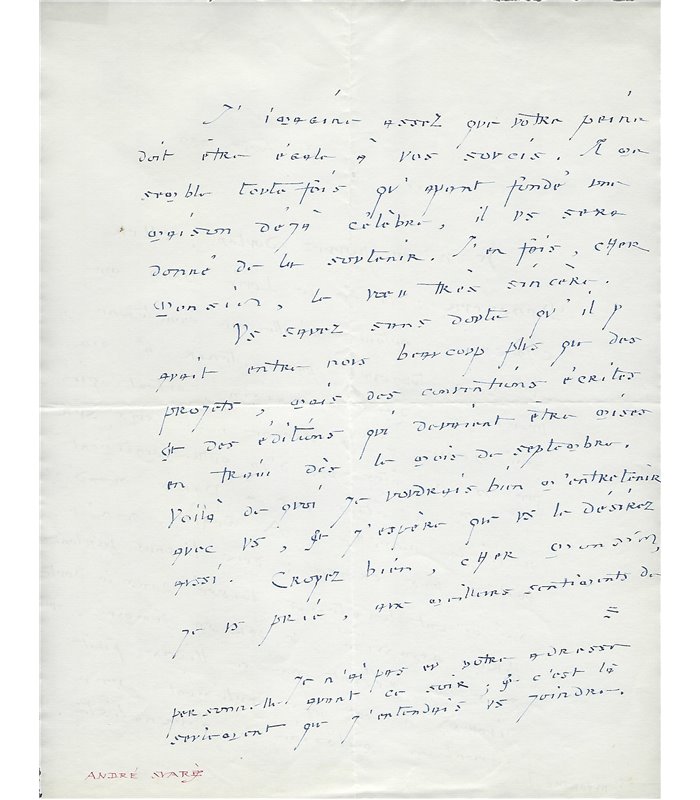 J'imagine assez que votre peine
doit être égale à vos soucis. Il me
semble toutefois qu'ayant fondé une
maison déjà célèbre, il vs sera
donné de la soutenir. J'en fais, cher
Monsieur, le vœu très sincère.
Vs savez sans doute qu'il y
avait entre nous beaucoup plus que des
projets, mais des conventions écrites
& des éditions qui devraient être mises
en train dès le mois de septembre.
Voilà de quoi je voudrais bien m'entretenir
avec vs, & j'espère que vs le désirez
aussi. Croyez bien, cher Monsieur,
je vs prie, aux meilleurs sentiments de
=
Je n'ai pas eu votre adresse
personnelle avant ce soir ; & c'est là
seulement que j'entendais vs joindre.
ANDRÉ SUARÈS